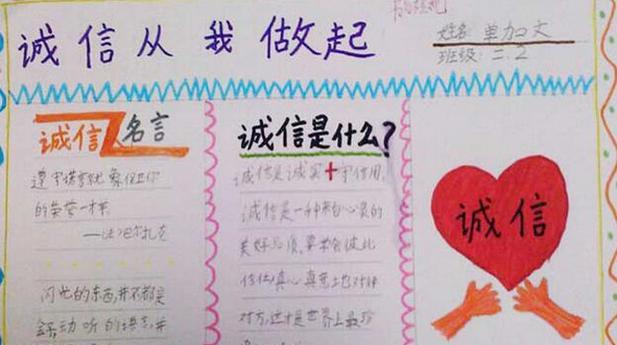 诚信从我做起
姓名:单加文
班级:二.2
诚信名言
遵守诺言就象保卫你
的荣誉一样
——法·巴尔扎克
闪光的东西,并不都是
金子,动听的语言,并
诚信是什么?
诚信是诚实+守信用,
诚信是一种来自心灵的
美好品质,
信任,真心真意地对待
对方,这才是世界上最珍
诚信